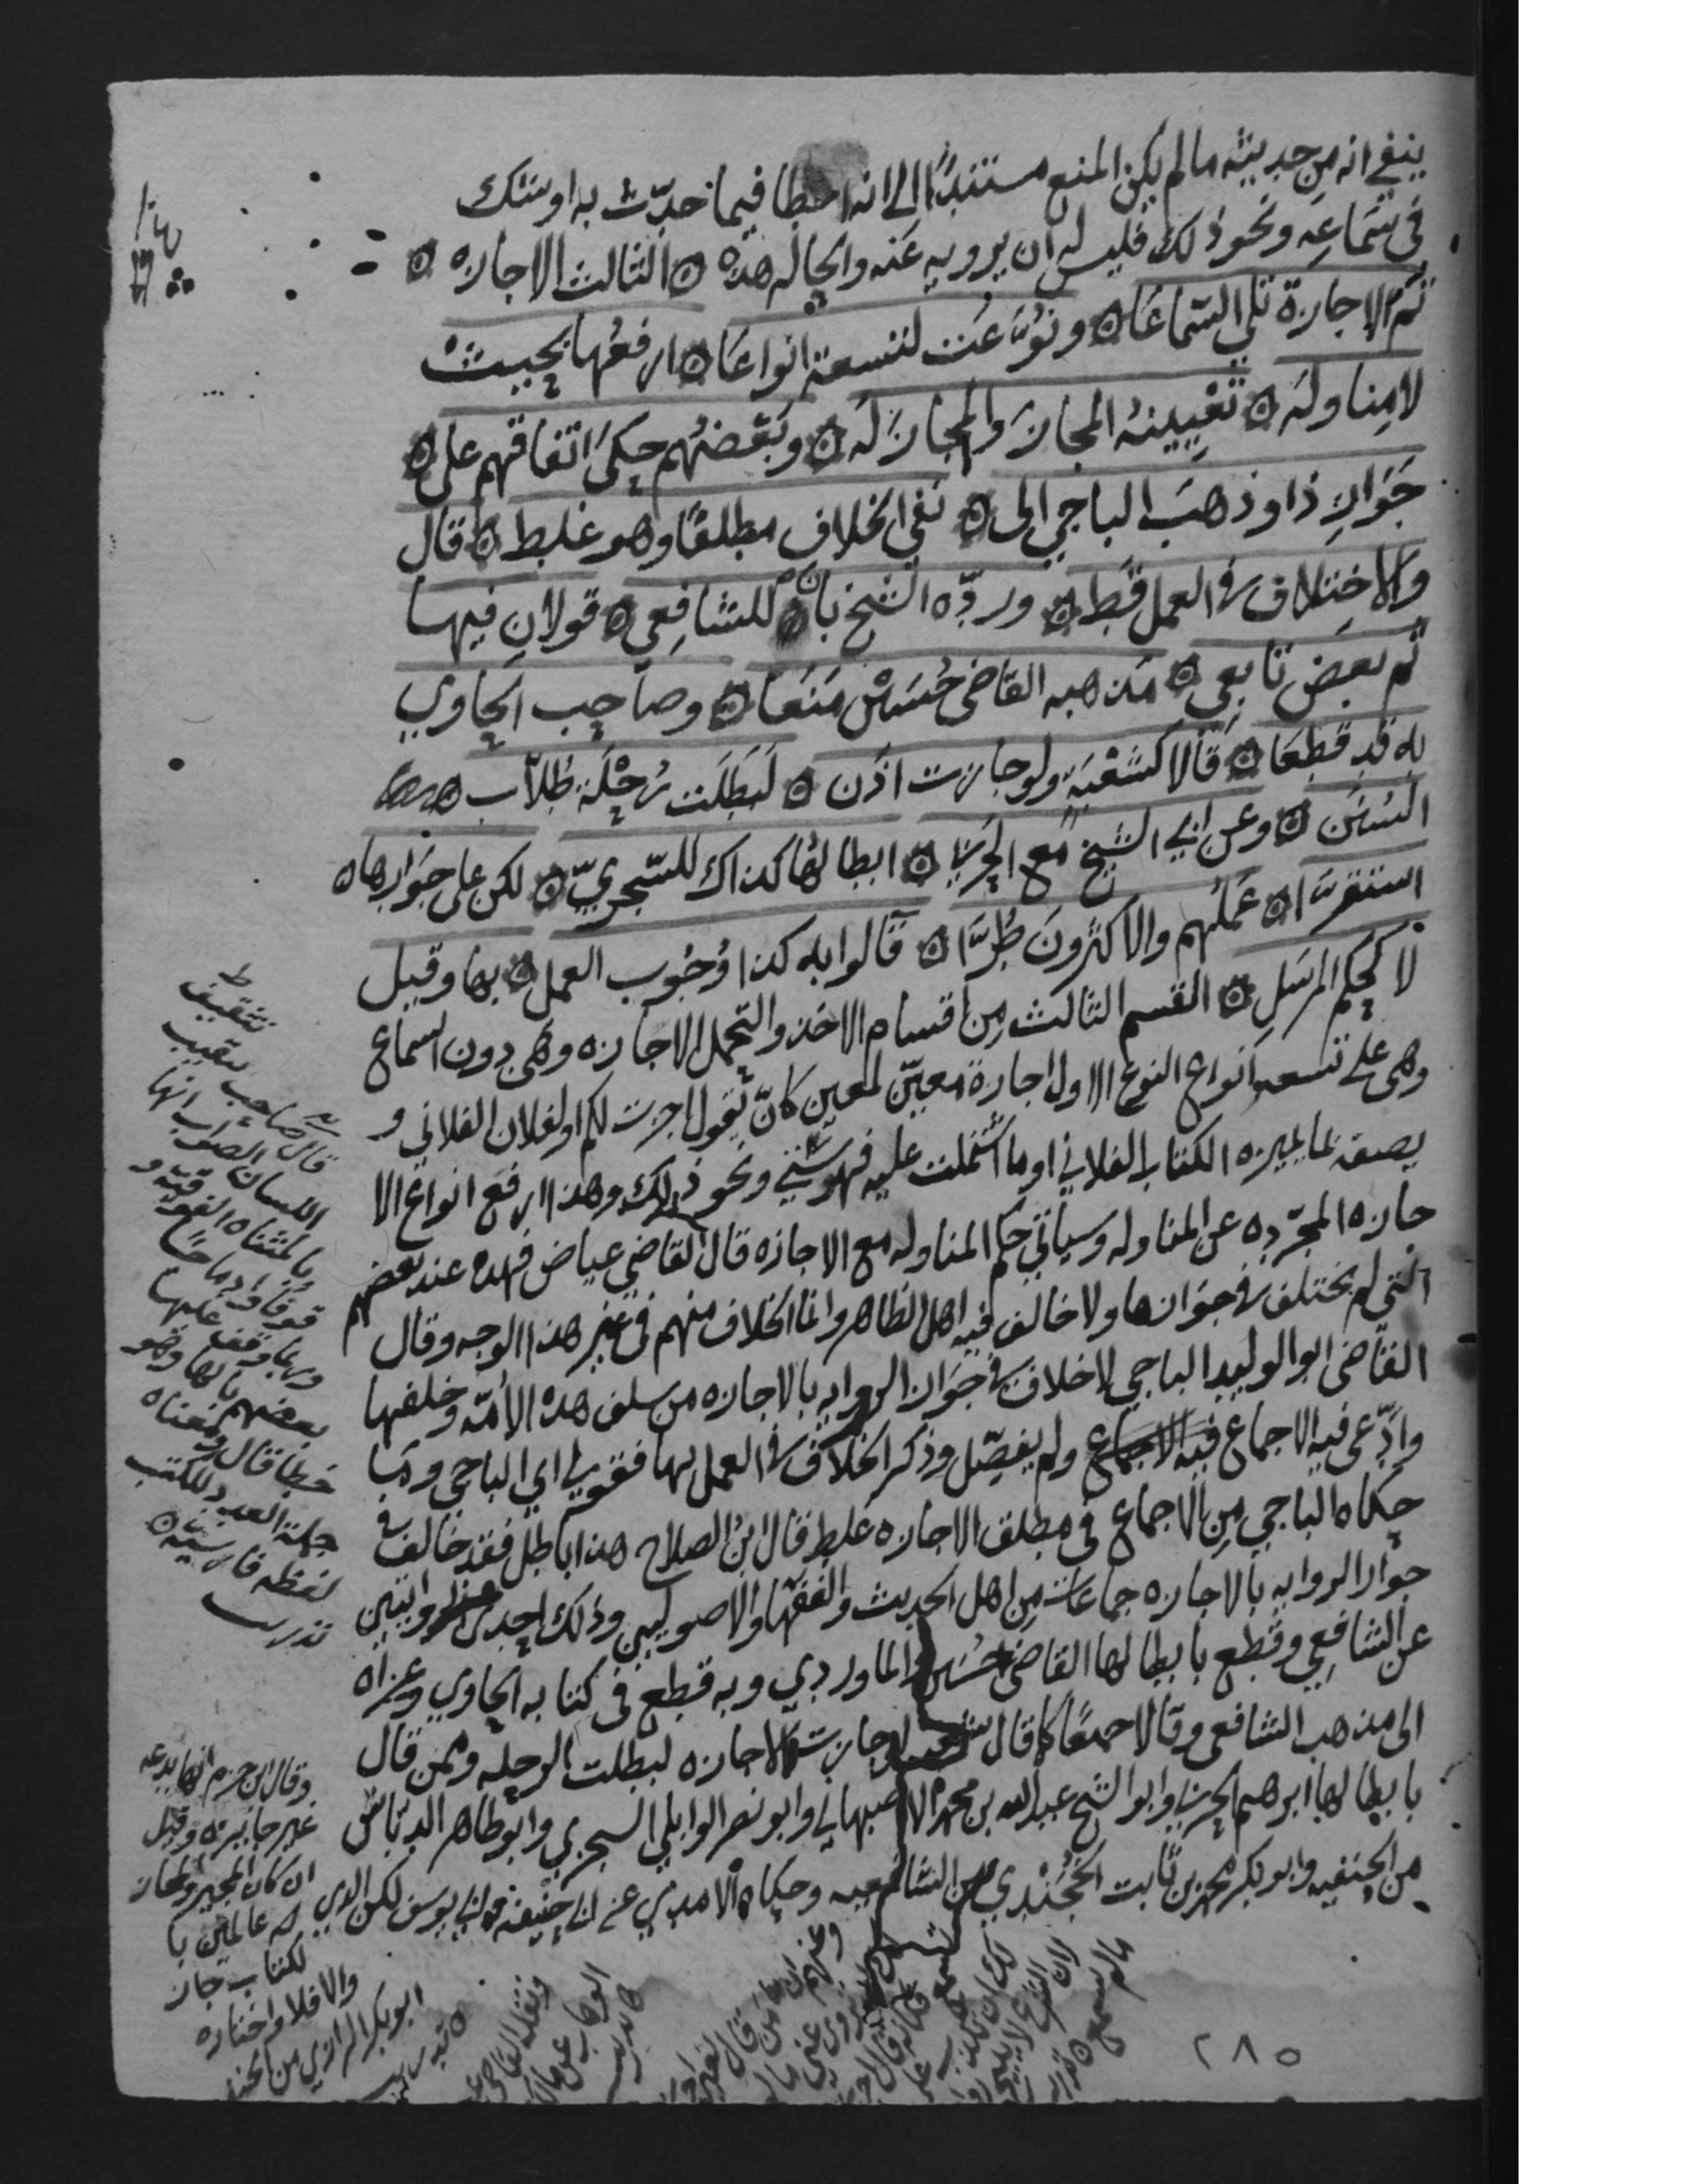 ينفي انه من حديثه ما لم يكن المنع مستندًا الى انه اخطا فيما حدّث به او شك
في سَماعِه ونحو ذلك فليس له ان يرويه عَنه والحاله هذه ۞ الثالث الاجازه ۞
ثم الاجازة تلي السّماعَا ۞ ونُوّعَت لتسعة انواعَا ۞ ارفعُها بحيث
لا مناوله ۞ تعْيِينهُ المجازَ والمجازَ لَه ۞ وبَعْضهُم حكى اتفاقهم على ۞
جَوَازِ ذا وذهبَ الباجي الى ۞ نفي الخلاف مطلقًا وهو غلط ۞ قال
والاختلاف في العمل قَط ۞ وردّه الشيخ بان للشافِعي ۞ قولان فيها
ثم بعض تابعي ۞ مَذهبه القاضي حُسَيْن مَنَعَا ۞ وصاحِب الحاوي
به قد قطعَا ۞ قالا كشعْبَةٍ ولو جازت اذَن ۞ لبَطَلَت رحْلَة طُلاّب
السُنَن ۞ وعن ابي الشيخ مع الحربي ۞ ابطالها كذاك للسّجزيّ ۞ لكن على جَوازها ۞
استقرَّا ۞ عَمَلُهم والاكثرونَ طُرَّا ۞ قالوا به كذا وُجُوب العمل ۞ بها وقيل
لا كحكم المرسَلِ ۞ القسم الثالث من اقسام الاخذ والتحمل الاجازه وهي دون السماع
وهي على تسعه انواع النوع الاول اجازة معيّن لمعين كان تقول اجزت لكم او لفلان الفلاني و
يصفه بما يميزه الكتاب الفلاني او ما اشتملت عليه فهرستي ونحو ذلك وهذا ارفع انواع الا
جازه المجّرده عن المناوله وسياتي حكم المناوله مع الاجازه قال القاضي عياض فهذه عند بعضهم
التي لم يختلف في جوازها ولا خالف فيه اهل الظاهر وانما الخلاف منهم في غير هذا الوجه وقال
القاضي ابو الوليد الباجي لا خلاف في جَواز الروايه بالاجازه من سلف هذه الأمّه وخلفها
وادّعى فيه الاجماع فيه الاجماع ولم يفصّل وذكر الخلاف في العمل بها فقولي اي الباجي وما
حكاه الباجي من الاجماع في مطلق الاجازه غلط قال ابن الصلاح هذا باطل فقد خالف في
جواز الروايه بالاجازه جماعات من اهل الحديث والفقها والاصوليين وذلك احدى الروايتين
عن الشافعي وقطع بابطالها القاضي حُسَين والماوردي وبه قطع في كتابه الحاوي وعزاه
الى مذهب الشافعي وقالا جميعًا كما قال شعبه لو جازت الاجازه لبطلت الرحله وممن قال
بابطالها ابرهيم الحربي وابو الشيخ عبد الله بن محمد الاصبهاني وابو نصر الوايلي السجزي وابو طاهر الدبّاس
من الحنفيه وابو بكر محمد بن ثابت الخُجَنْدي من الشافعيه وحكاه الامدي عن ابي حنيفه وابي يوسف لكن الذي
تثقيف
قال صاحب تثقيب
اللسان الصواب انها
بالمثناه الفوقيه و
قوفًا وادماجًا
وربما وقف عليها
بعضهم بالها وهو
خطا قال ومعناه
جملة العدد للكتب
لفظه فارسيّه ۞
تدريب
وقال ابن حزم انها بدعه
غير جايزه وقيل
ان كان المجيز والمجاز
له عالمين با
لكتاب جاز
والا فلا واختاره
ابو بكر الرازي من
٢٨٥